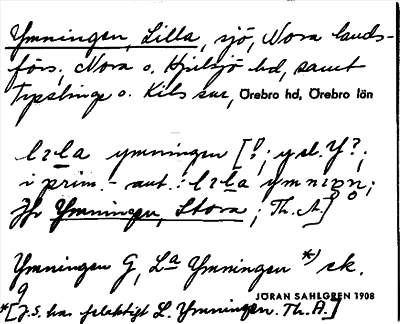 Ymningen, Lilla, sjö, Nora lands-
förs., Nora o. Hjulsjö hd, samt
Tysslinge o. Kils snr, Örebro hd, Örebro län
lɩla ymningen [!; ysl. Y?;
i prim.-aut.: lɩla ymnɩŋn;
Jfr Ymningen, Stora; Th. A.]
Ymningen G, La Ymningen *) ek.
g
JÖRAN SAHLGREN 1908
*[J.S. har felaktigt L. Ymningen. Th. A.]